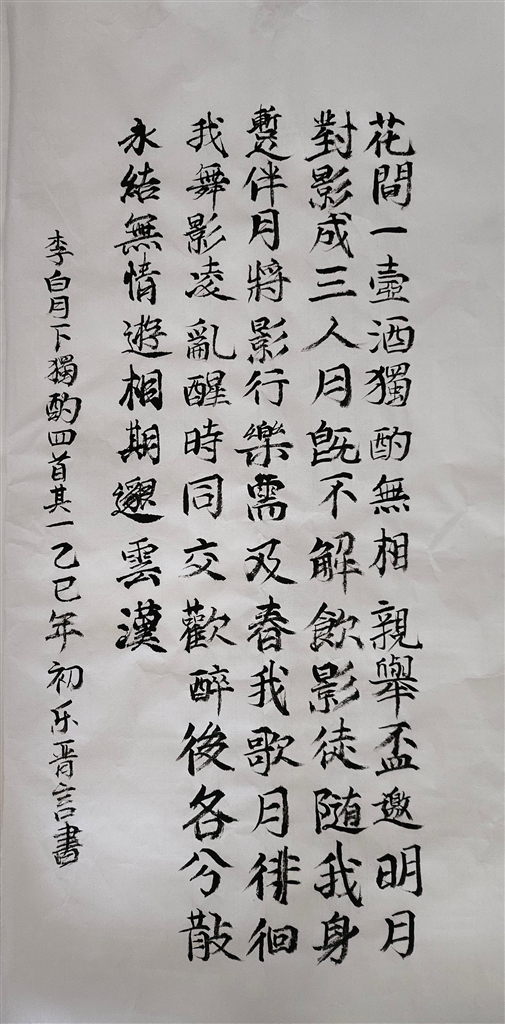 花間一壺酒獨酌無相親舉盃邀明月
對影成三人月既不解飲影徒隨我身
暫伴月將影行樂需及春我歌月徘徊
我舞影凌亂醒時同交歡醉後各分散
永結無情遊相期邈雲漢
李白月下獨酌四首其一乙巳年初乐晋言書